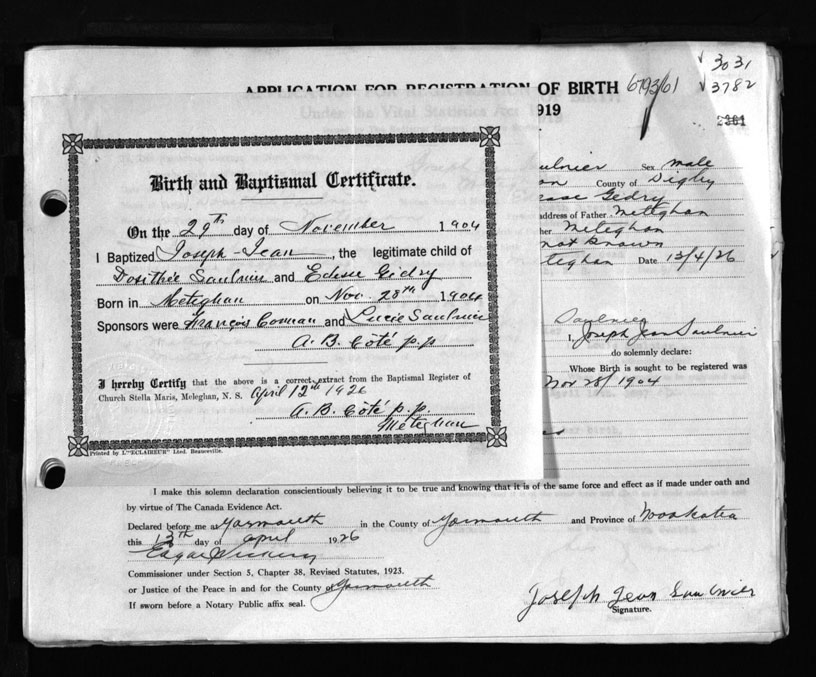 APPLICATION FOR REGISTRATION OF BIRTH 6793/61
√ 3031
√ 3782
1919
2301
Birth and Baptismal Certificate.
On the 29th day of November 1904
I Baptized Joseph-Jean, the legitimate child of
Dosithée Saulnier and Edesse Gidry
Born in Meteghan on Nov. 28th 1904
Sponsors were François Comeau and Lucie Saulnier
A. B. Côté p.p
I hereby Certify that the above is a correct extract from the Baptismal Register of
Church Stella Maris, Meleghan, N. S. April 12th 1926
A. B. Côté p.p.
Meteghan
Printed by L'"ECLAIREUR" Lted. Beauceville.
aulnier Sex male
on County of Digby
Gedry
address of Father Meteghan
her Meteghan
not known
teghan Date 13/4/26
Saulnier
I, Joseph Jean Saulnier
do solemnly declare:
Whose Birth is sought to be registered was
Nov 28/1904
I make this solemn declaration conscientiously believing it to be true and knowing that it is of the same force and effect as if made under oath and
by virtue of The Canada Evidence Act.
Declared before me at Yarmouth in the County of Yarmouth and Province of Nova Scotia
this 13th day of April 1926
Edgar
Commissioner under Section 5, Chapter 38, Revised Statutes, 1923.
or Justice of the Peace in and for the County of Yarmouth
If sworn before a Notary Public affix seal.
Joseph Jean Saulnier
Signature.